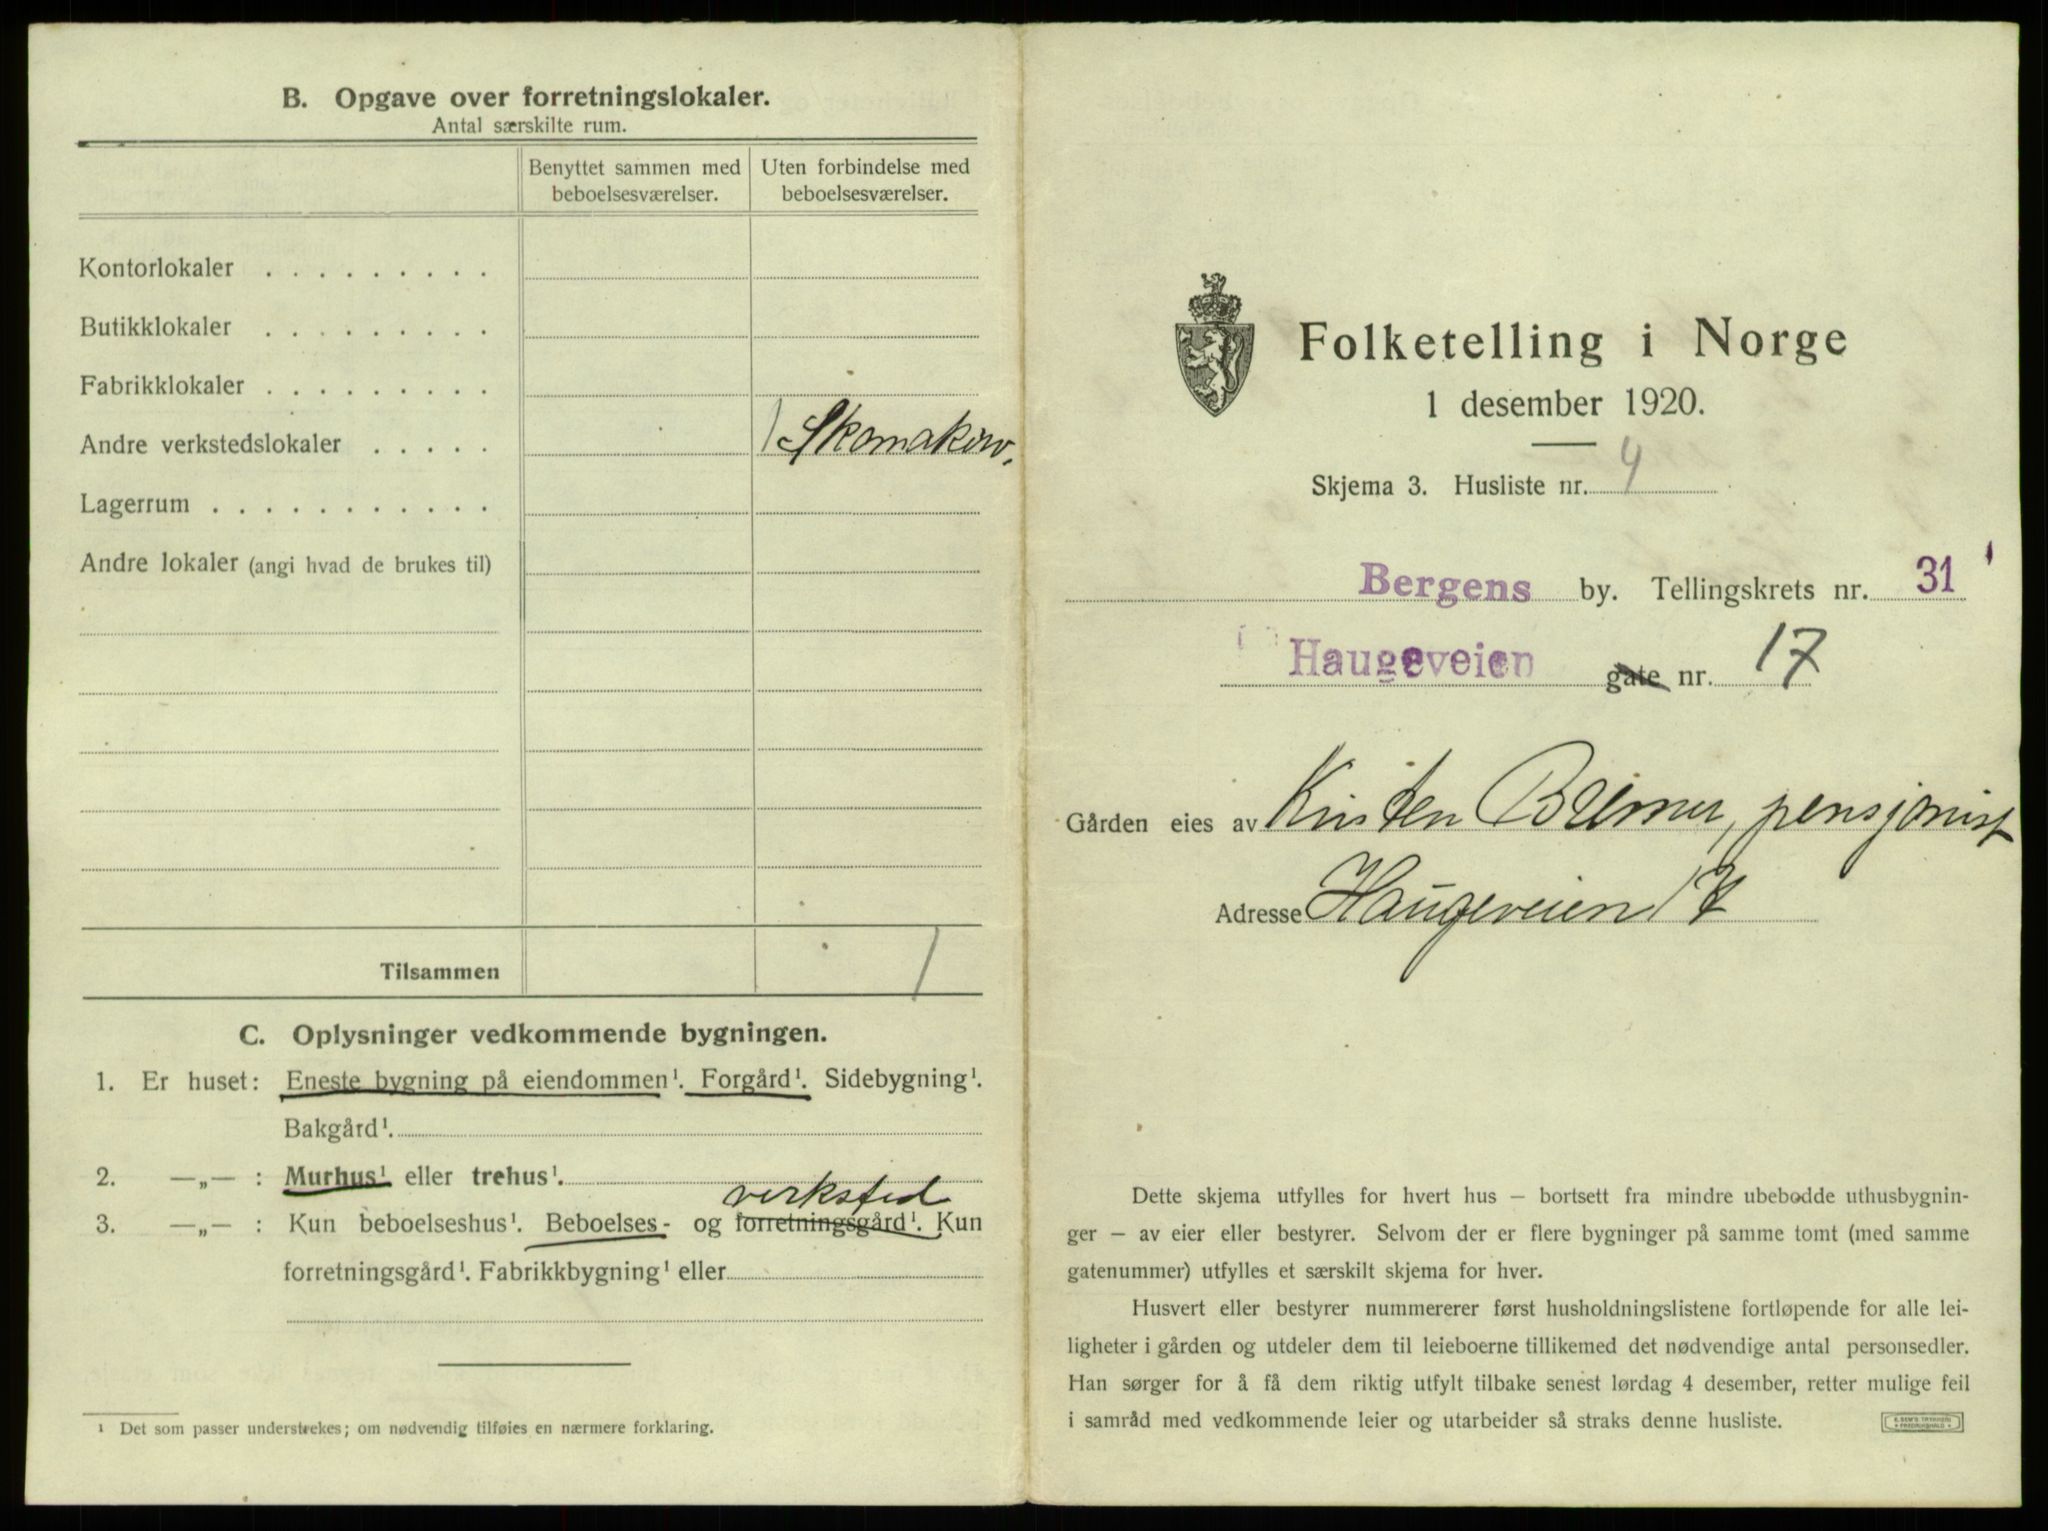 B. Opgave over forretningslokaler.
Antal særskilte rum.
Benyttet sammen med beboelsesværelser.
Uten forbindelse med beboelsesværelser.
Kontorlokaler . . . . . . . . .
Butikklokaler . . . . . . . . .
Fabrikklokaler . . . . . . . . .
Andre verkstedslokaler . . . . . 1 Skomakerv.
Lagerrum . . . . . . . . . . .
Andre lokaler (angi hvad de brukes til)
Tilsammen 1
C. Oplysninger vedkommende bygningen.
1. Er huset: Eneste bygning på eiendommen¹. Forgård¹. Sidebygning¹.
Bakgård¹.
2. —„— : Murhus¹ eller trehus¹.
verksted
3. —„— : Kun beboelseshus¹. Beboelses- og forretningsgård¹. Kun
forretningsgård¹. Fabrikkbygning¹ eller
¹ Det som passer understrekes; om nødvendig tilføies en nærmere forklaring.
Folketelling i Norge
1 desember 1920.
Skjema 3. Husliste nr. 4
Bergens by. Tellingskrets nr. 31
Haugeveien gate nr. 17
Gården eies av Kristen Bremer, pensjonist
Adresse Haugeveien 17
Dette skjema utfylles for hvert hus – bortsett fra mindre ubebodde uthusbygnin-
ger – av eier eller bestyrer. Selvom der er flere bygninger på samme tomt (med samme
gatenummer) utfylles et særskilt skjema for hver.
Husvert eller bestyrer nummererer først husholdningslistene fortløpende for alle lei-
ligheter i gården og utdeler dem til leieboerne tillikemed det nødvendige antal personsedler.
Han sørger for å få dem riktig utfylt tilbake senest lørdag 4 desember, retter mulige feil
i samråd med vedkommende leier og utarbeider så straks denne husliste.